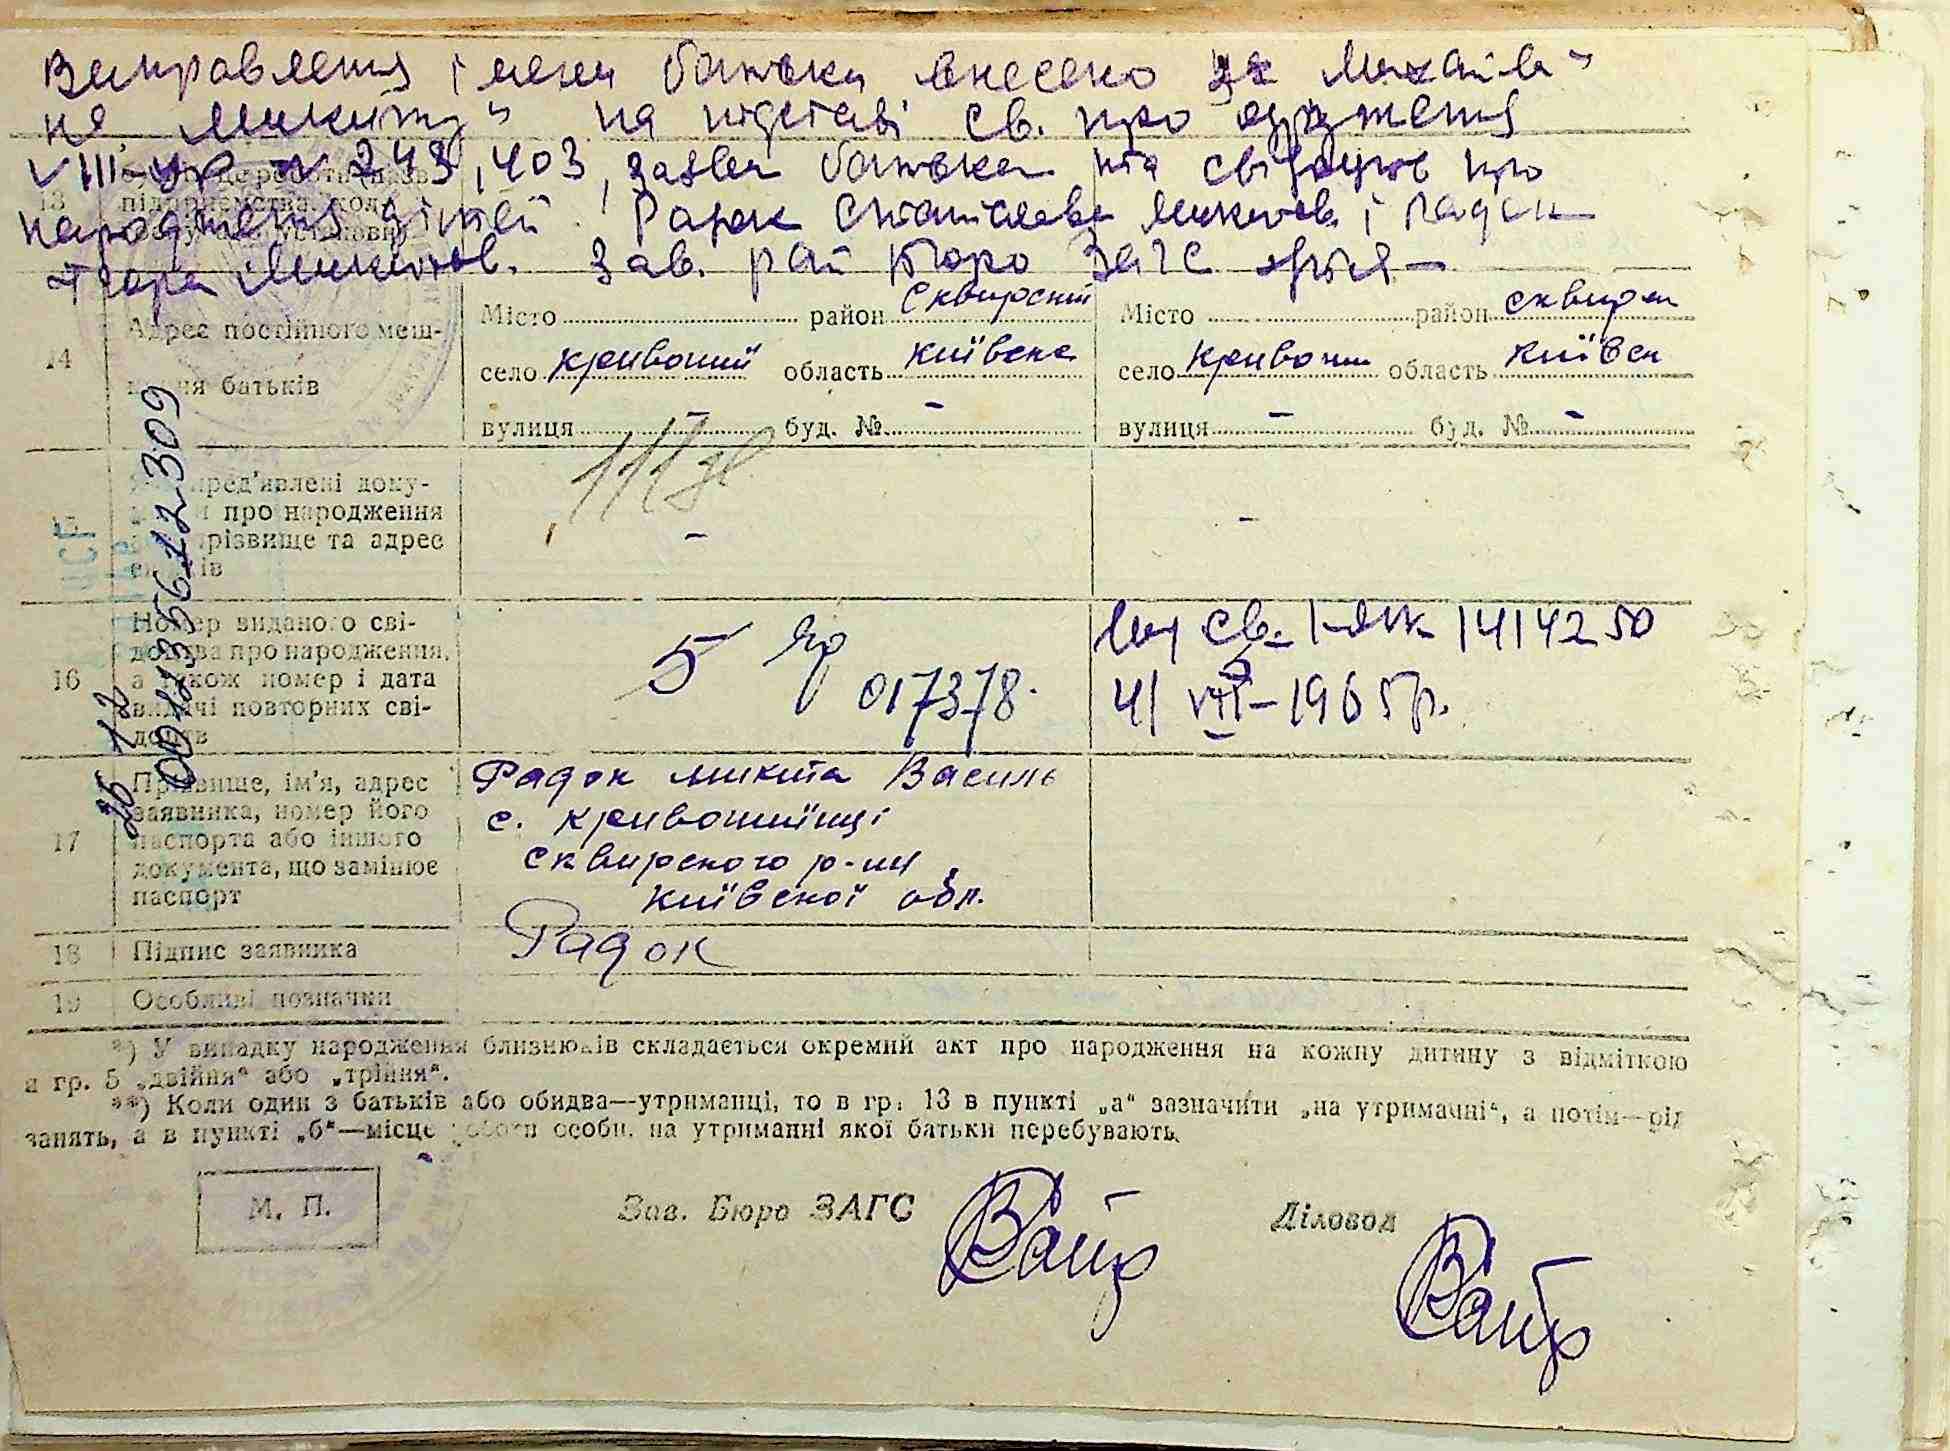 Виправлення імени батька внесено з Михайла"
на "Микиту" на підставі св. про одруження
VIII-УР N 243,403, заяви батька та свідоцтв про
народження дітей: Радок Станіслава Микитов. і Радок
Ігора Микитов. Зав. рай бюро Загс
13
14 Адрес постійного меш-
ня батьків
Місто район Сквирский
село Кривоший область Київска
вулиця - буд. № -
Місто район сквирск
село Кривоши область Київск
вулиця - буд. № -
пред'явлені доку-
про народження
різвище та адрес
-
-
16 Номер виданого сві-
доцтва про народження,
а також номер і дата
видачі повторних сві-
доцтв
5 Яр 017378.
св. 1414250
41 VIII-1965р.
00113356112309
17 Прізвище, ім'я, адрес
заявника, номер його
паспорта або іншого
документа, що замінює
паспорт
Радок микита Василь
с. кривошиїнці
сквирского р-ну
київскої обл.
18 Підпис заявника
Радок
19 Особливі позначки
*) У випадку народження близнюків складається окремий акт про народження на кожну дитину з відміткою
в гр. 5 „двійня“ або „трійня“.
**) Коли один з батьків або обидва—утриманці, то в гр. 13 в пункті „а“ зазначити „на утриманні“, а потім—рід
занять, а в пункті „б“—місце роботи особи, на утриманні якої батьки перебувають.
М. П.
Зав. Бюро ЗАГС
Діловод